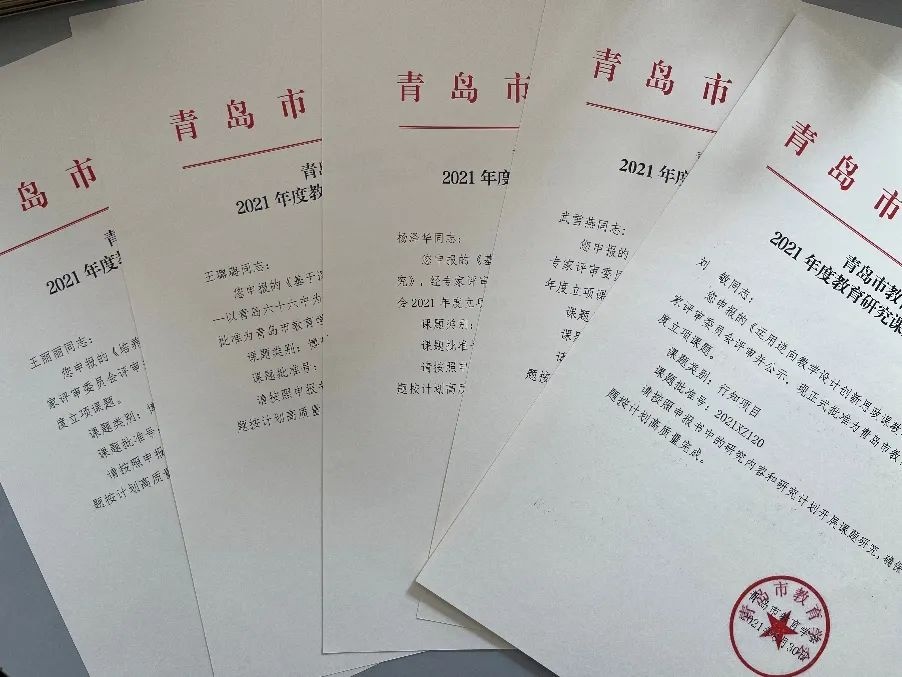 岛市
2021年度教
王丽丽同志：
您申报的《培养
家评审委员会评审
度立项课题。
课题类别：
课题批准号
请按照申报
题按计划高质
青岛市
青
2021年度教
王璐璐同志：
您申报的《基于
--以青岛六十六中为
批准为青岛市教育学
课题类别：
课题批准号：
请按照申报书
题按计划高质
青岛市
2021年度
杨泽华同志：
您申报的《基
究》，经专家评审
会2021年度立项
课题类别：
课题批准
请按照
题按计划高质
青岛市
2021年度
武雪燕同志：
您申报的
专家评审委员
年度立项课
课题
课题
请
题按
青岛市
青岛市教
2021年度教育研究课
刘敏同志：
您申报的《运用逆向教学设计创新思政课
家评审委员会评审并公示，现正式批准为青岛市教
度立项课题。
课题类别：行知项目
课题批准号：2021XZ120
请按照申报书中的研究内容和研究计划开展课题研究，确保
题按计划高质量完成。
青岛市教育学会
青岛市教育学会